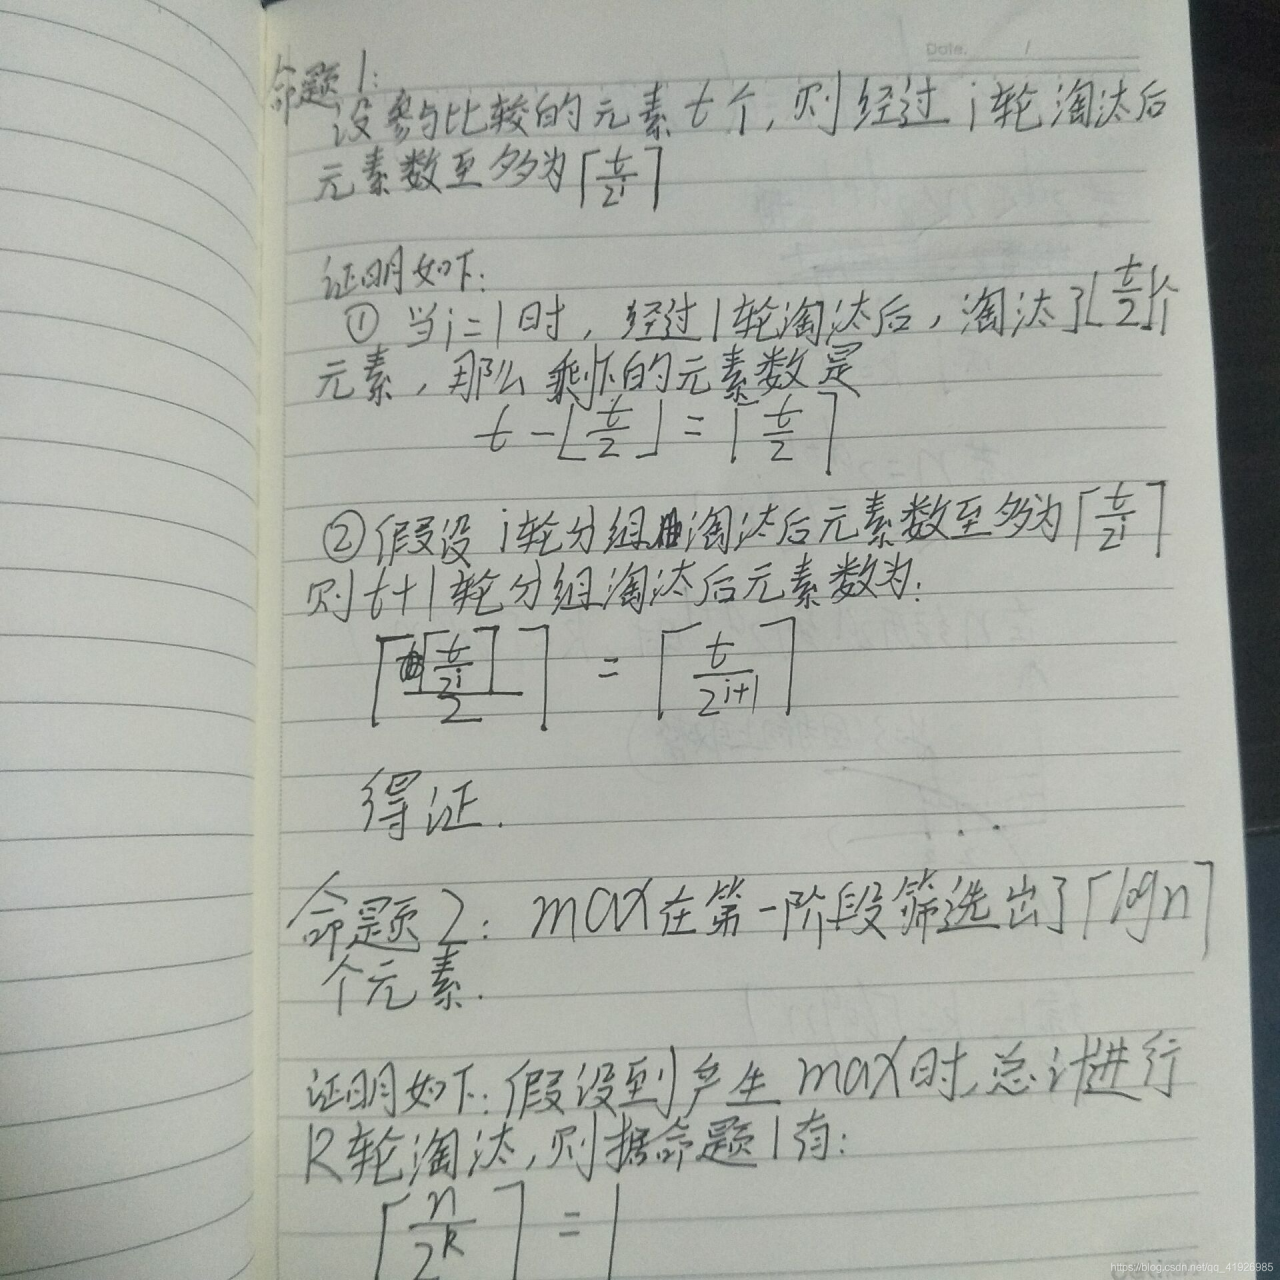 Date. /
命题1:
设参与比较的元素t个,则经过i轮淘汰后
元素数至多为⌈t/2^i⌉
证明如下:
① 当i=1时,经过1轮淘汰后,淘汰了⌊t/2⌋个
元素,那么剩下的元素数是
t-⌊t/2⌋=⌈t/2⌉
②假设i轮分组淘汰后元素数至多为⌈t/2^i⌉
则t+1轮分组淘汰后元素数为:
⌈⌈t/2^i⌉/2⌉ = ⌈t/2^{i+1}⌉
得证.
命题2: max在第一阶段筛选出了⌈logn⌉
个元素.
证明如下:假设到产生max时,总计进行
K轮淘汰,则据命题1有:
⌈n/2^k⌉ = 1
https://blog.csdn.net/qq_41926985